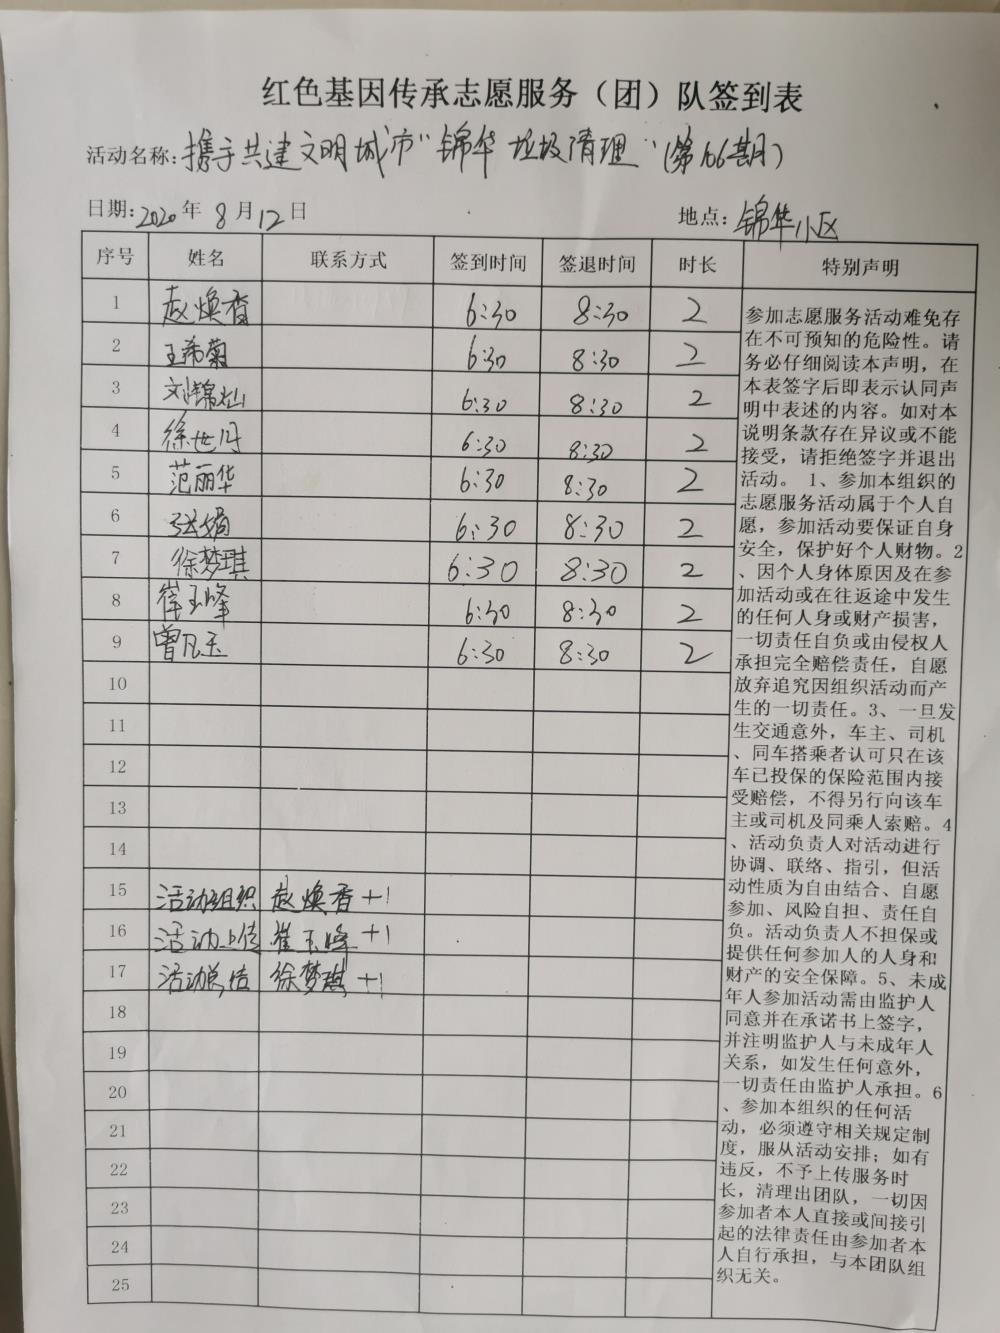 红色基因传承志愿服务（团）队签到表
活动名称:携手共建文明城市"锦华垃圾清理"(第166期)
日期:2020年 8月12日 地点:锦华小区
序号 姓名 联系方式 签到时间 签退时间 时长 特别声明
1 赵焕香 6:30 8:30 2
2 王希菊 6:30 8:30 2
3 刘锦灿 6:30 8:30 2
4 徐世月 6:30 8:30 2
5 范丽华 6:30 8:30 2
6 张娟 6:30 8:30 2
7 徐梦琪 6:30 8:30 2
8 崔玉峰 6:30 8:30 2
9 曾凡玉 6:30 8:30 2
10
11
12
13
14
15 活动组织 赵焕香+1
16 活动上传 崔玉峰+1
17 活动总结 徐梦琪+1
18
19
20
21
22
23
24
25
参加志愿服务活动难免存
在不可预知的危险性。请
务必仔细阅读本声明，在
本表签字后即表示认同声
明中表述的内容。如对本
说明条款存在异议或不能
接受，请拒绝签字并退出
活动。 1、参加本组织的
志愿服务活动属于个人自
愿，参加活动要保证自身
安全，保护好个人财物。2
、因个人身体原因及在参
加活动或在往返途中发生
的任何人身或财产损害，
一切责任自负或由侵权人
承担完全赔偿责任，自愿
放弃追究因组织活动而产
生的一切责任。3、一旦发
生交通意外，车主、司机
、同车搭乘者认可只在该
车已投保的保险范围内接
受赔偿，不得另行向该车
主或司机及同乘人索赔。4
、活动负责人对活动进行
协调、联络、指引，但活
动性质为自由结合、自愿
参加、风险自担、责任自
负。活动负责人不担保或
提供任何参加人的人身和
财产的安全保障。5、未成
年人参加活动需由监护人
同意并在承诺书上签字，
并注明监护人与未成年人
关系，如发生任何意外，
一切责任由监护人承担。6
、参加本组织的任何活
动，必须遵守相关规定制
度，服从活动安排；如有
违反，不予上传服务时
长，清理出团队，一切因
参加者本人直接或间接引
起的法律责任由参加者本
人自行承担，与本团队组
织无关。